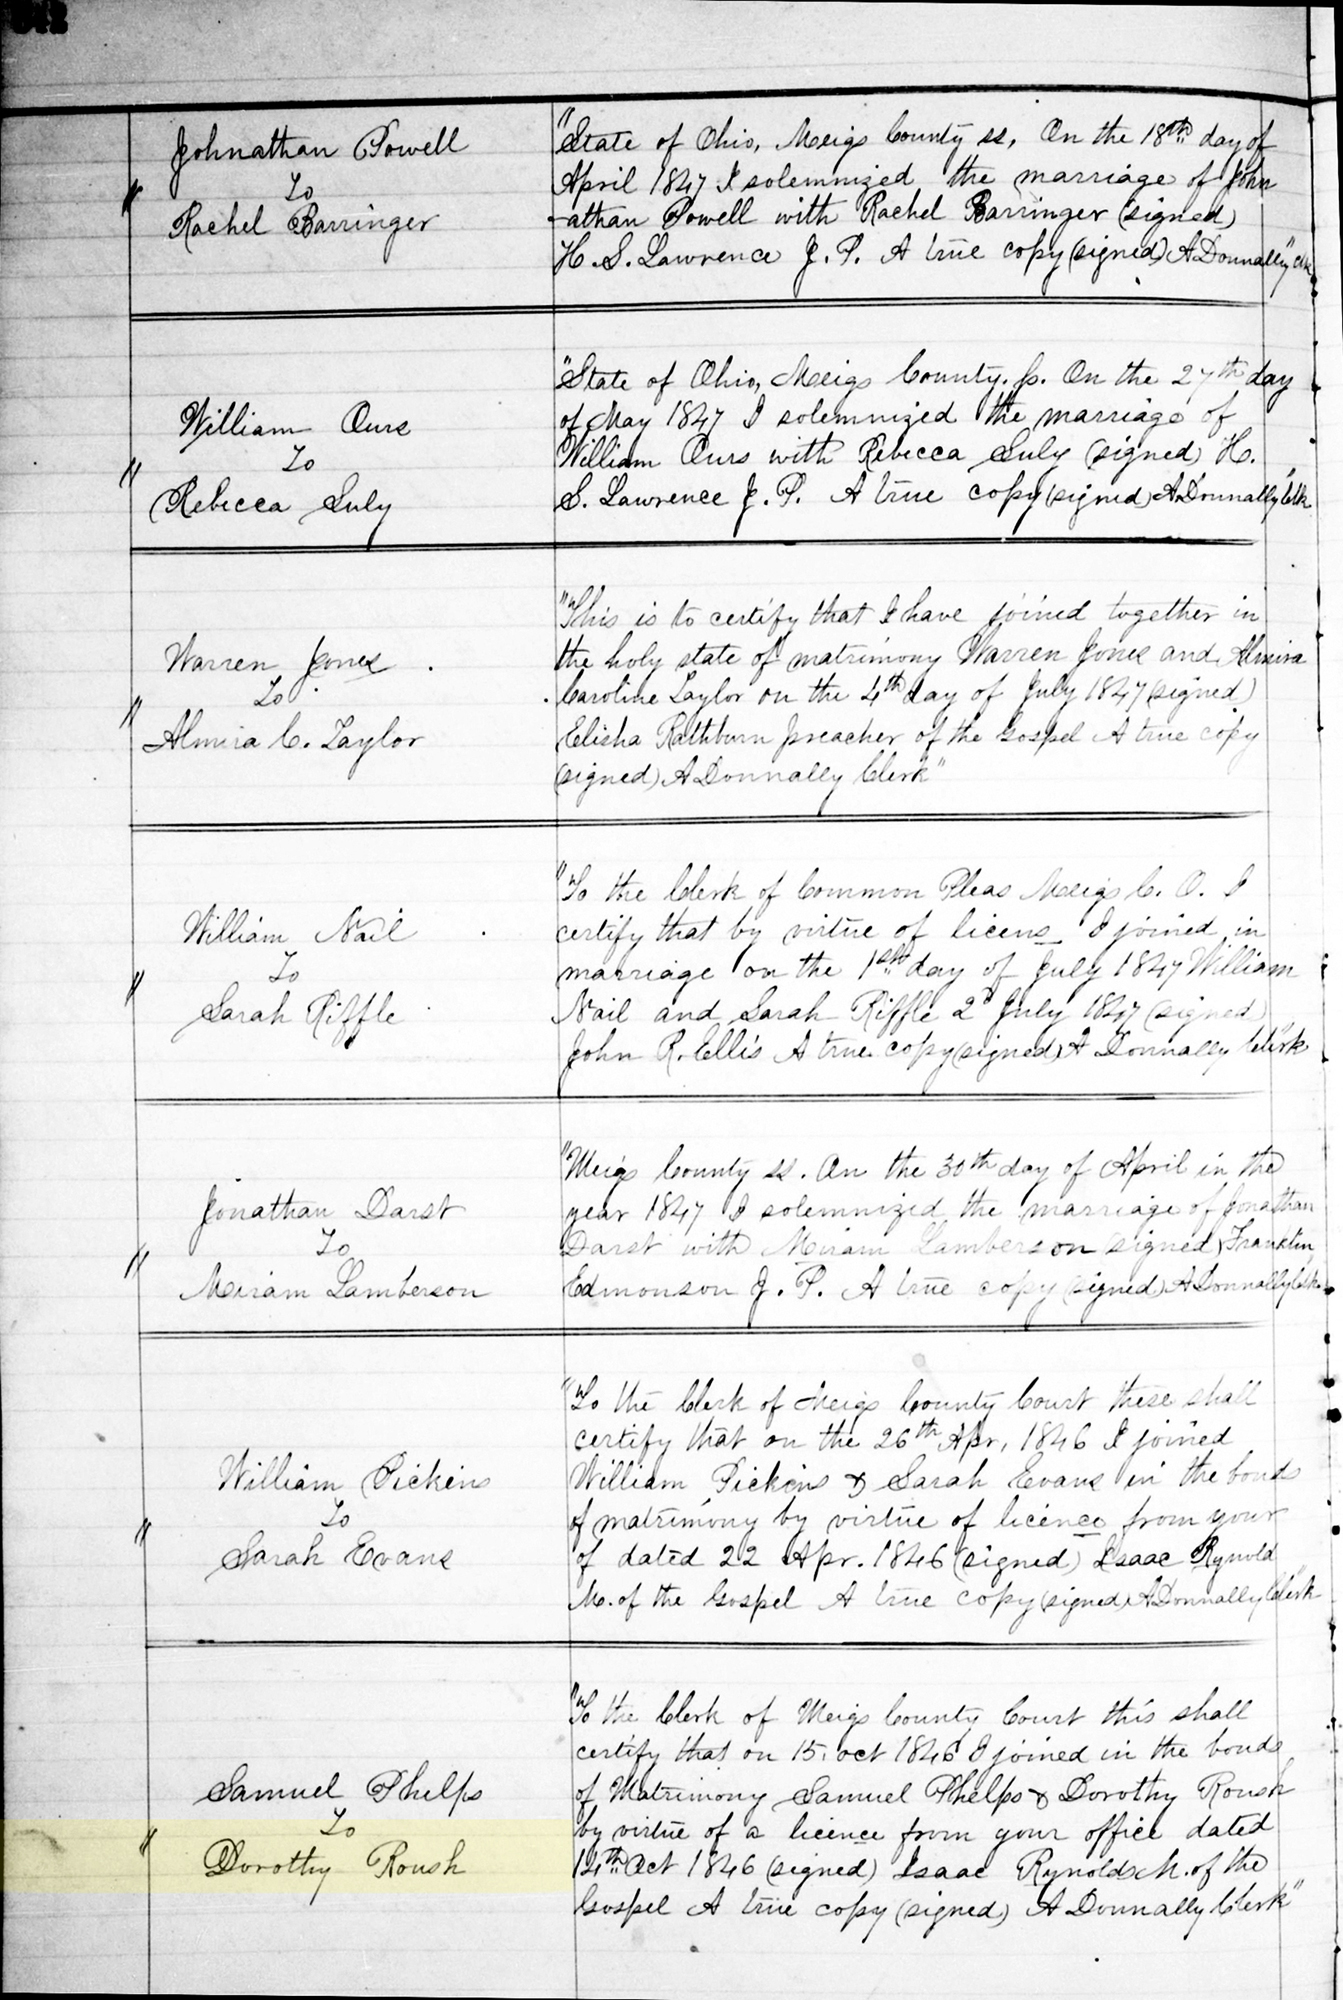 342
Johnathan Powell
To
Rachel Barringer
"State of Ohio, Meigs County ss, On the 18th day of
April 1847 I solemnized the marriage of John
-athan Powell with Rachel Barringer (signed)
H. S. Lawrence J. P. A true copy (signed) A Donnally" Clk
William Ours
To
Rebecca Suly
"State of Ohio, Meigs County. ss. On the 27th day
of May 1847 I solemnized the marriage of
William Ours with Rebecca Suly (signed) H.
S. Lawrence J. P. A true copy (signed) A Donnally Clk
Warren Jones
To
Almira C. Taylor
"This is to certify that I have joined together in
the holy state of matrimony Warren Jones and Almira
Caroline Taylor on the 4th day of July 1847 (signed)
Elisha Rathburn preacher of the Gospel A true copy
(signed) A Donnally Clerk"
William Nail
To
Sarah Riffle
"To the Clerk of Common Pleas Meigs C. O. I
certify that by virtue of licens I joined in
marriage on the 1st day of July 1847 William
Nail and Sarah Riffle 2d July 1847 (signed)
John R. Ellis A true copy (signed) A Donnally Clerk
Jonathan Darst
To
Miriam Lamberson
"Meigs County ss. On the 30th day of April in the
year 1847 I solemnized the marriage of Jonathan
Darst with Miriam Lamberson (signed) Franklin
Edmonson J. P. A true copy (signed) A Donnally Clk
William Pickins
To
Sarah Evans
"To the Clerk of Meigs County Court these shall
certify that on the 26th Apr, 1846 I joined
William Pickins & Sarah Evans in the bonds
of matrimony by virtue of licence from your
of dated 22 Apr. 1846 (signed) Isaac Rynold
M. of the Gospel A true copy (signed) A Donnally Clerk
Samuel Phelps
To
Dorothy Roush
"To the Clerk of Meigs County Court this shall
certify that on 15. oct 1846 I joined in the bonds
of Matrimony Samuel Phelps & Dorothy Roush
by virtue of a licence from your office dated
14th Oct 1846 (signed) Isaac Rynolds M. of the
Gospel A true copy (signed) A Donnally Clerk"